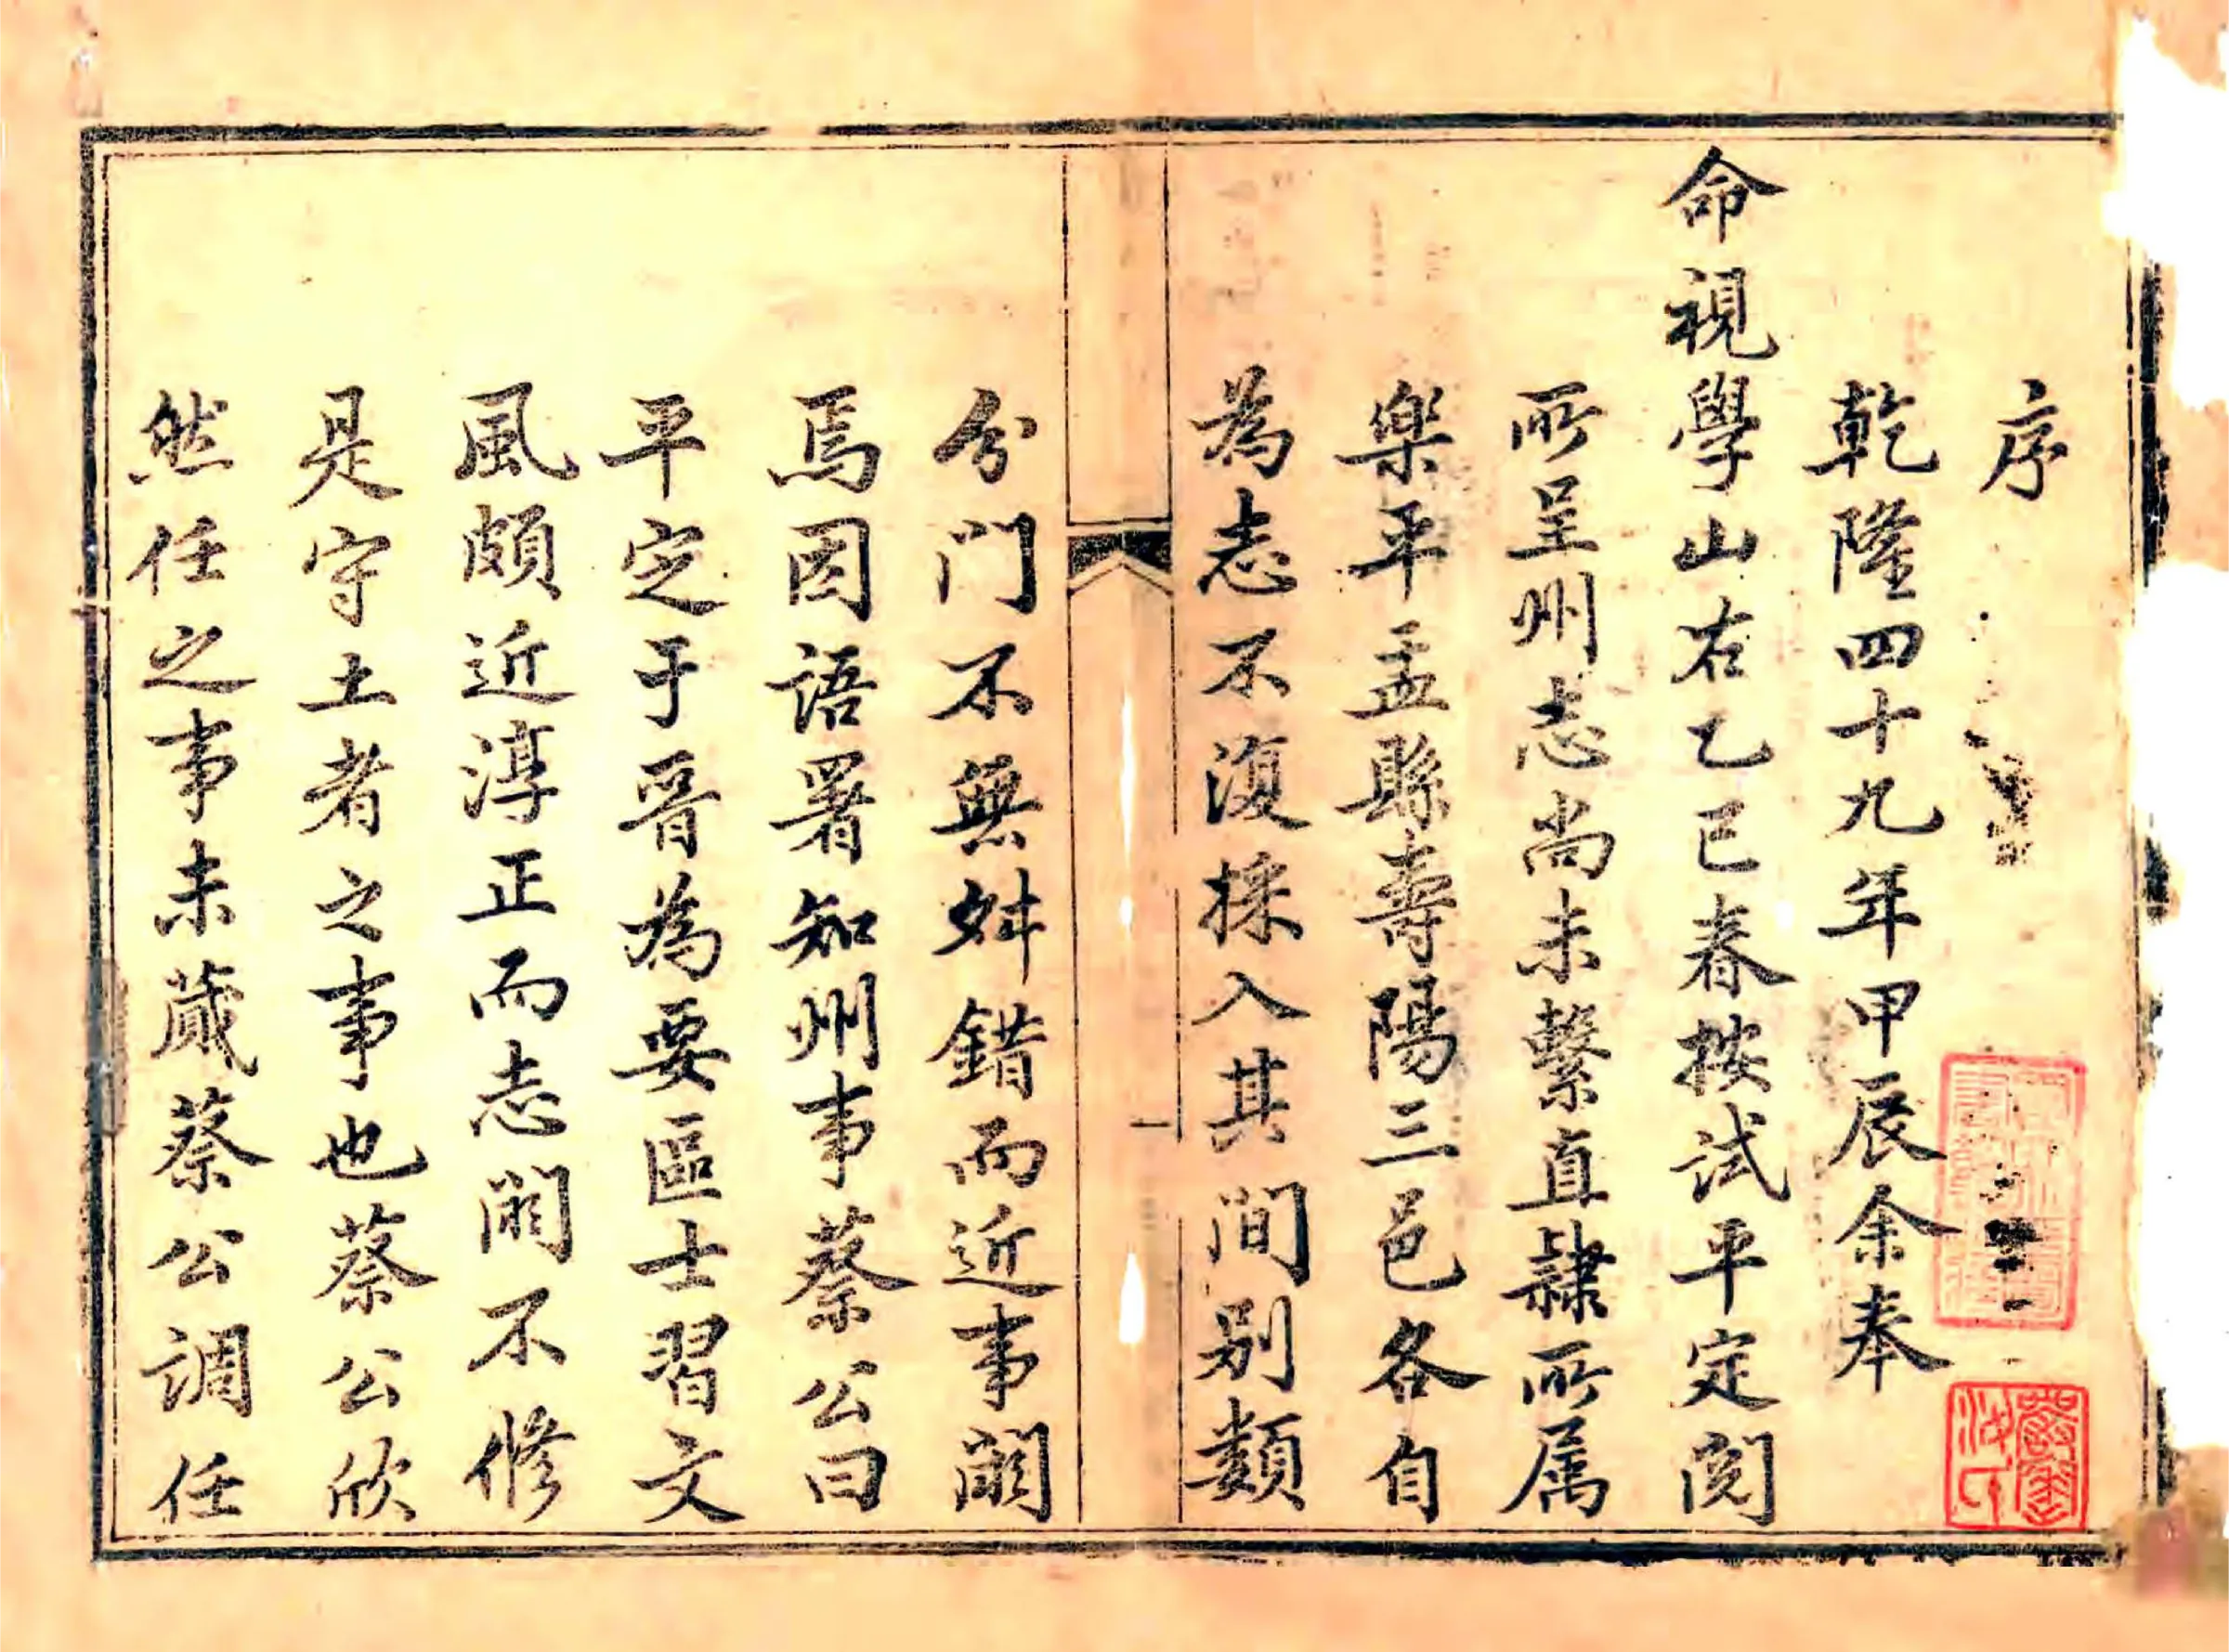 序
乾隆四十九年甲辰余奉
命視學山右乙巳春按試平定閱
所呈州志尚未繫直隸所属
樂平盂縣壽陽三邑各自
為志不復採入其間别類
分門不無舛錯而近事闕
焉因語署知州事蔡公曰
平定于晉為要區士習文
風頗近淳正而志闕不修
是守土者之事也蔡公欣
然任之事未蕆蔡公調任
一